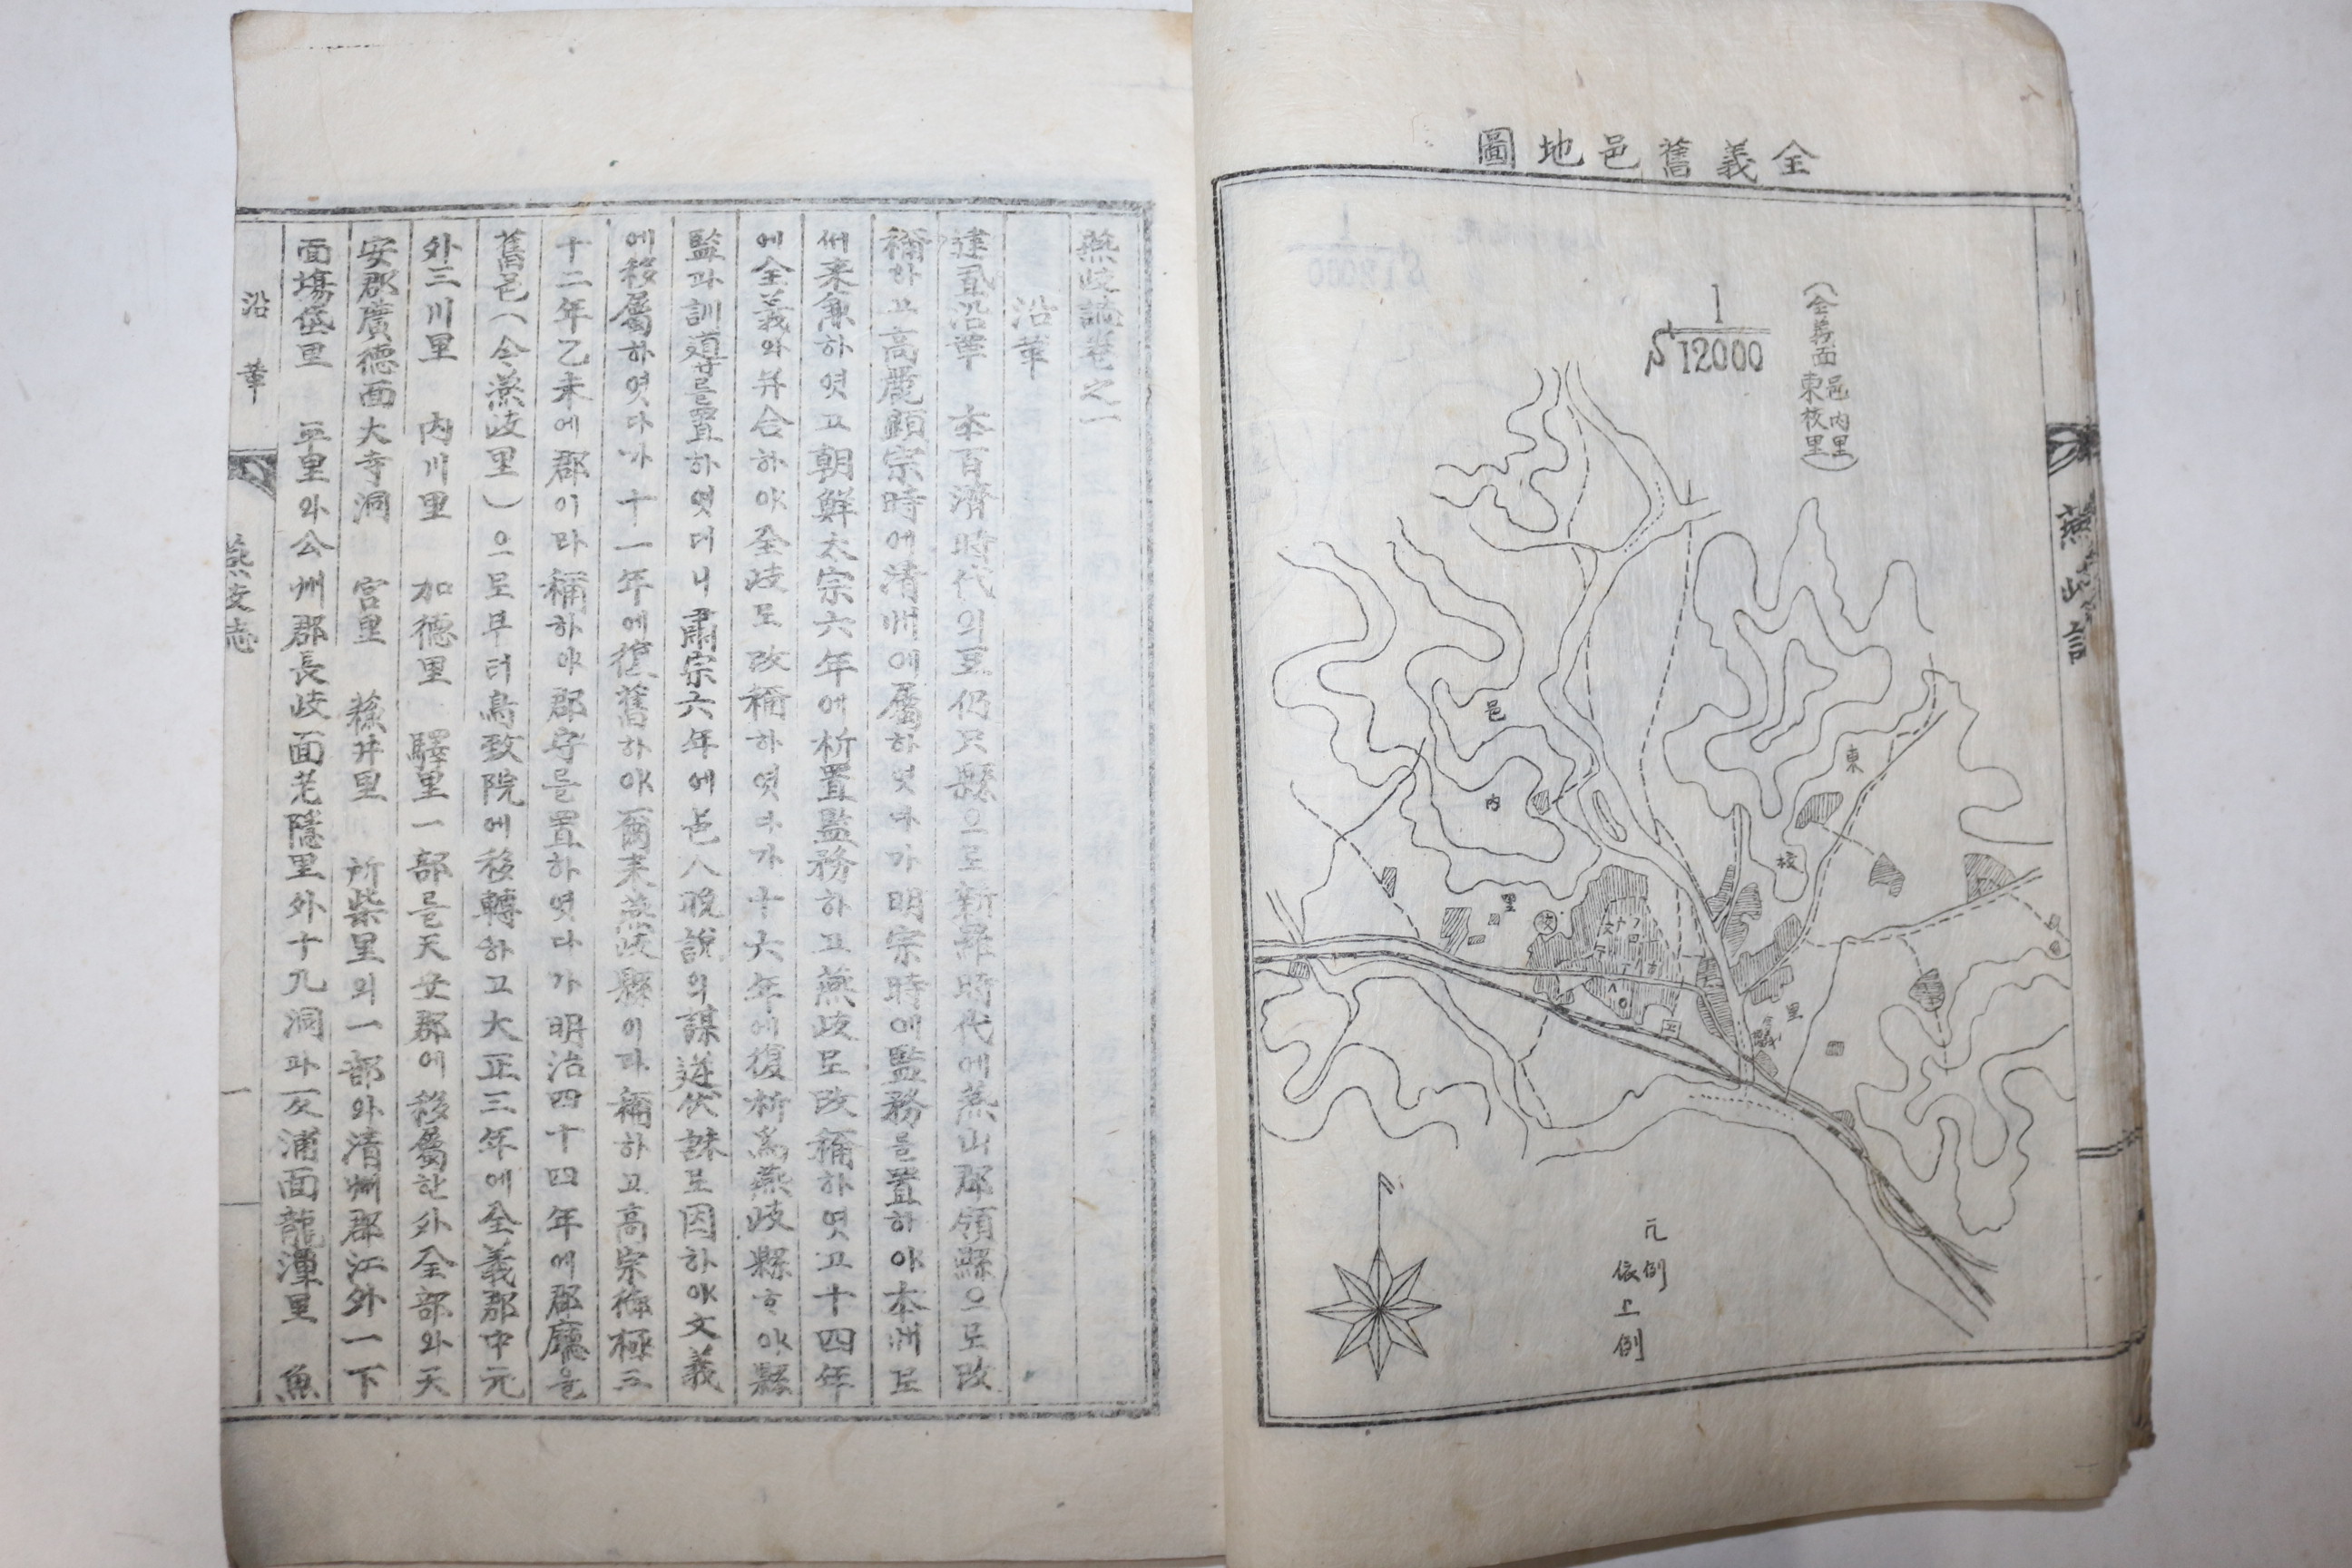 全義舊邑地圖
(全義面 邑内里
東校里)
1
12000
邑
内
里
東
校
里
凡例
依上例
燕岐誌
燕岐誌卷之一
沿革
建置沿革 本百濟時代의豆仍只縣으로新羅時代에燕山郡領縣으로改
稱하고高麗顯宗時에清州에屬하엿다가明宗時에監務를置하야本州로
來兼하엿고朝鮮太宗六年에析置監務하고燕歧로改稱하엿고十四年
에全義와幷合하야全歧로改稱하엿다가十六年에復析爲燕歧縣하야縣
監과訓導를置하엿더니肅宗六年에邑人 說의謀逆伏誅로因하야文義
에移屬하엿다가十一年에復舊하야爾來燕歧縣이라稱하고高宗 極三
十二年乙未에郡이라稱하야郡守를置하엿다가明治四十四年에郡廳을
舊邑(今燕歧里)으로부터鳥致院에移轉하고大正三年에全義郡中元
外三川里 内川里 加德里 驛里一部를天安郡에移屬한外全部와天
安郡廣德面大寺洞 宮里 井里 所柴里의一部와清州郡江外一下
面塲垈里 平里와公州郡長歧面老隱里外十九洞과反浦面龍潭里 魚
沿革
燕歧志
一